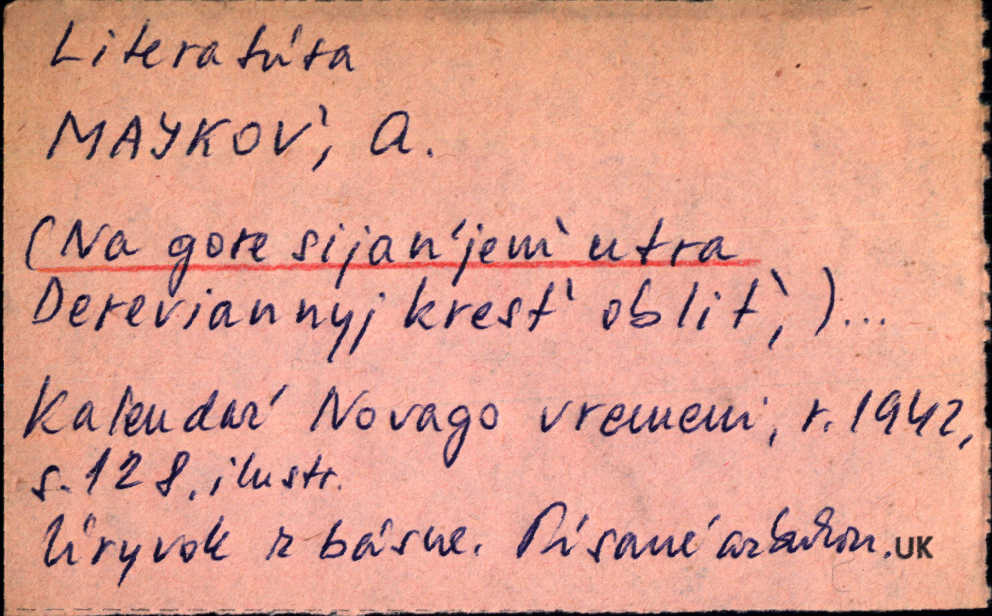 Literatúra
MAYKOV', A.
(Na gore sijan'jem' utra
Dereviannyj krest' oblit',)...
Kalendar' Novago vremeni, r. 1942,
s. 128, ilustr.
Úryvok z básne. Písané azbukou. UK